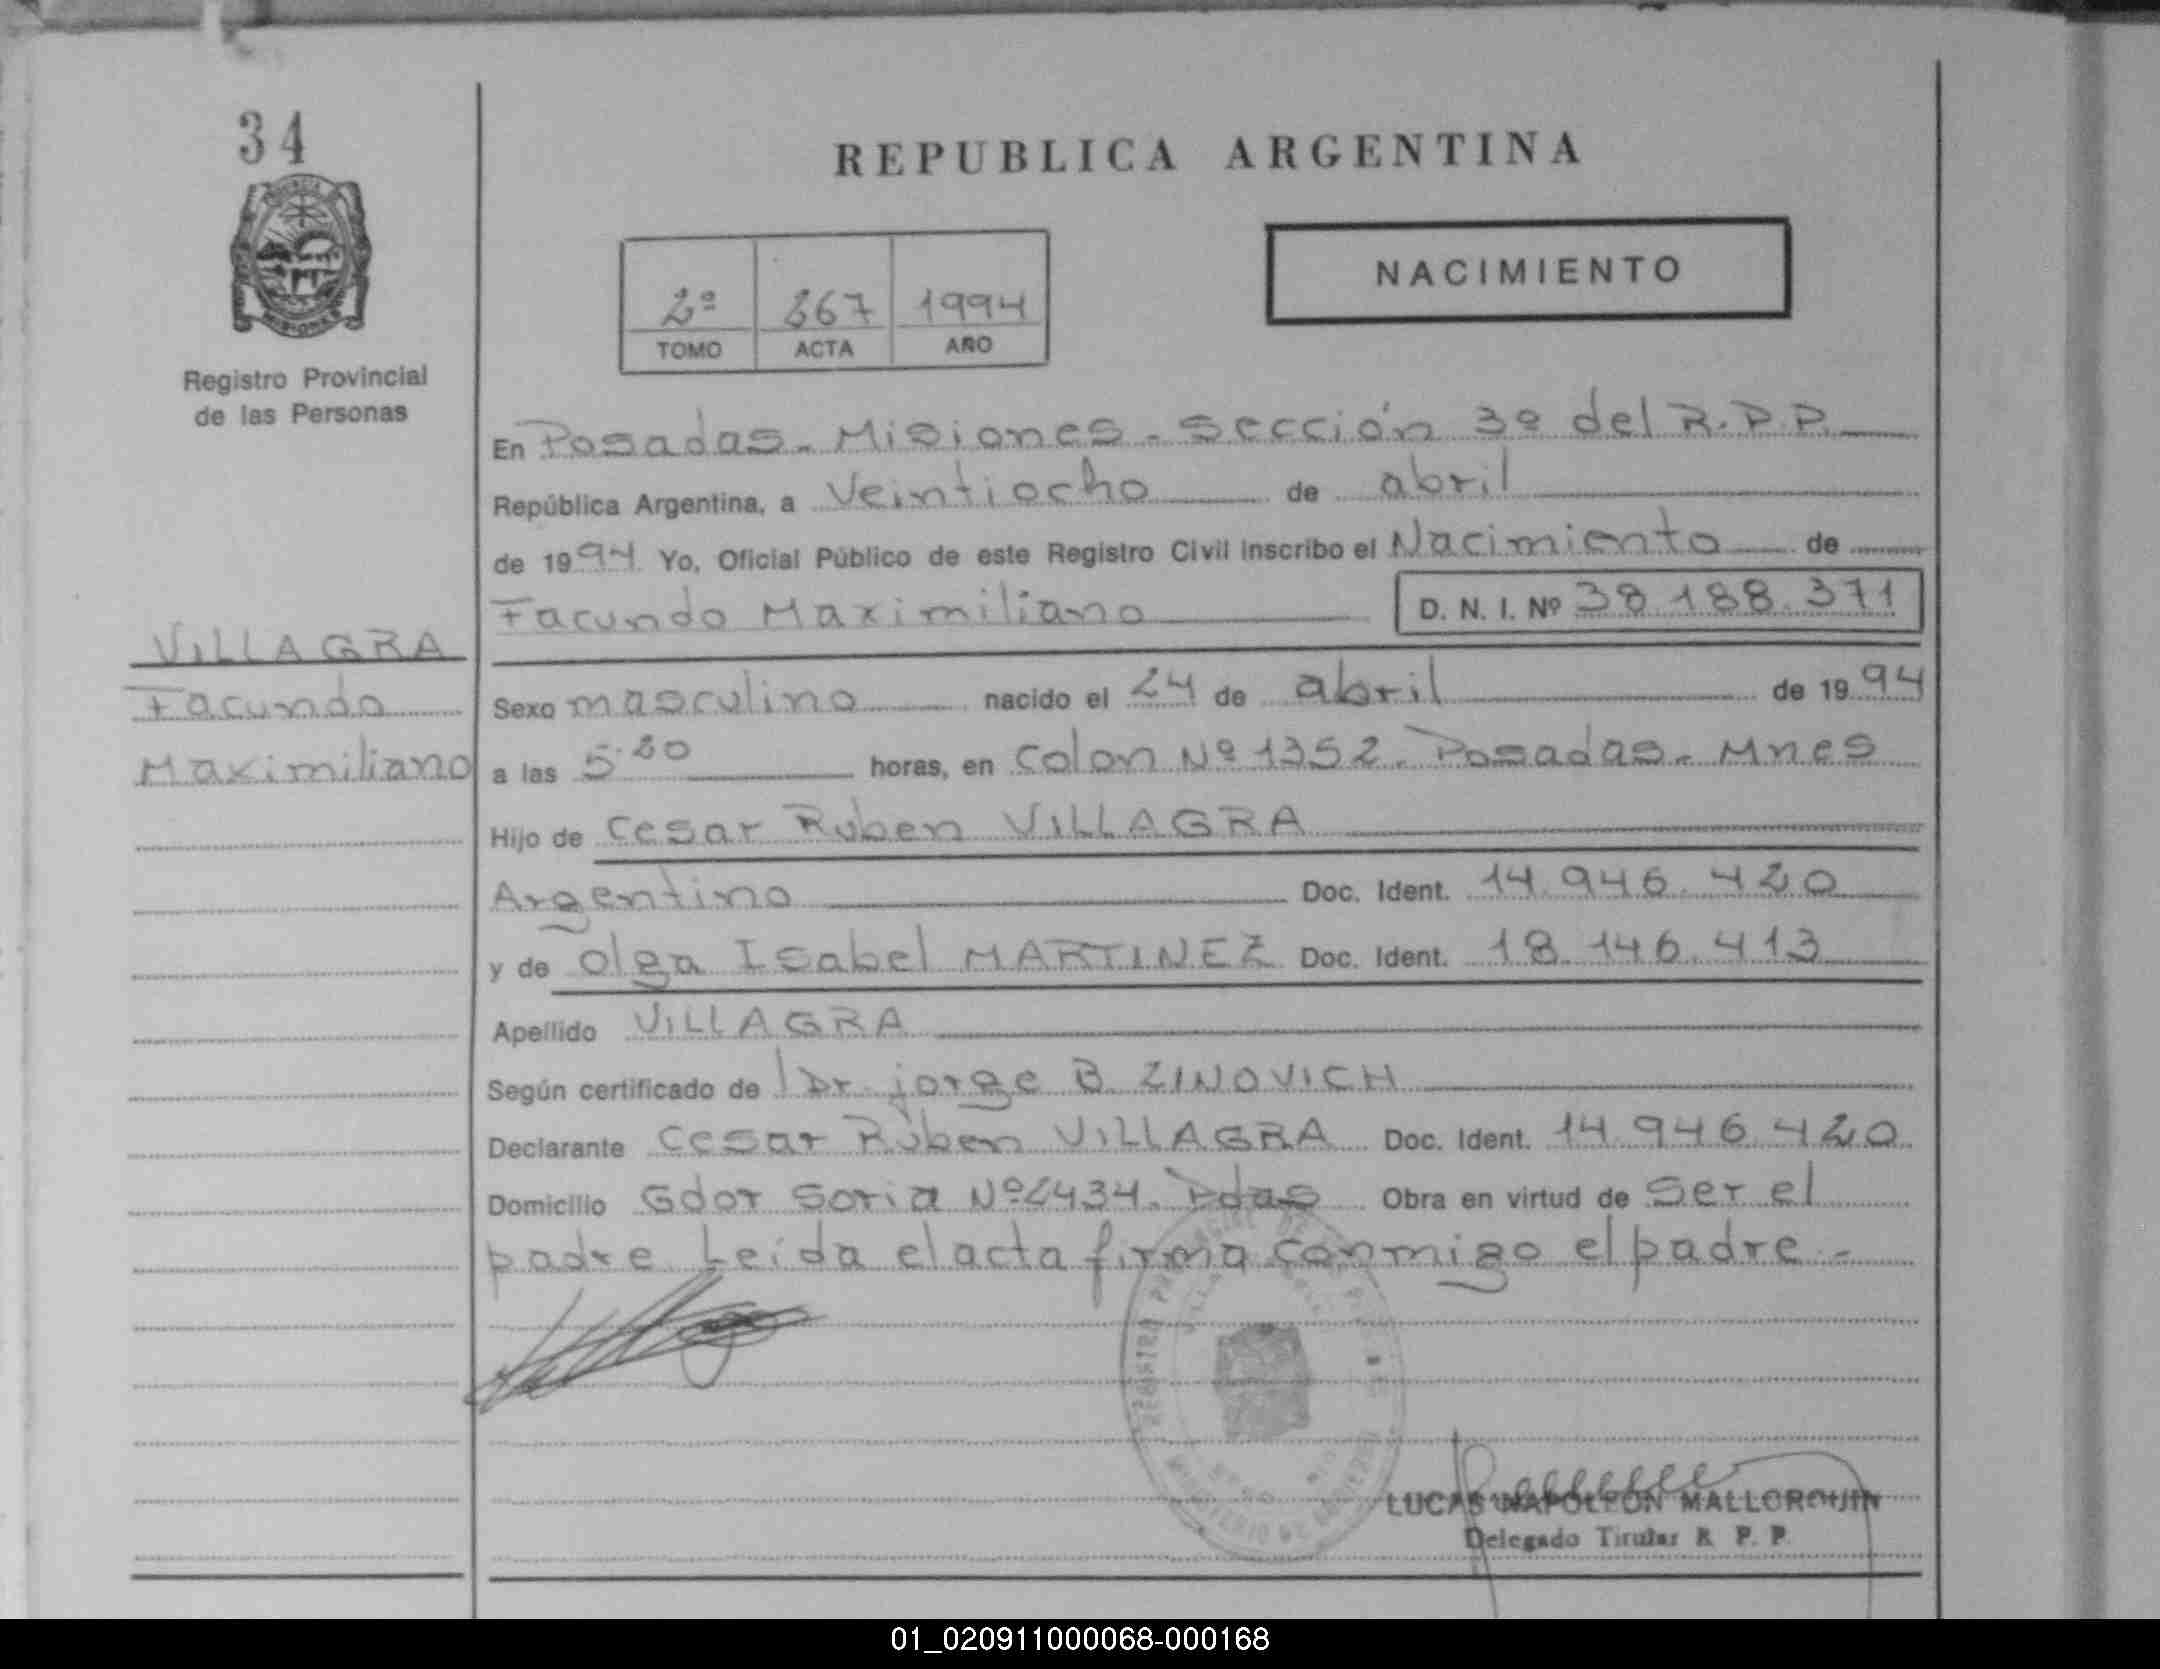 34
REPUBLICA ARGENTINA
NACIMIENTO
2º 267 1994
TOMO ACTA AÑO
MISIONES
Registro Provincial
de las Personas
En Posadas - Misiones - Sección 3º del R.P.P.
República Argentina, a Veintiocho de abril
de 1994 Yo, Oficial Público de este Registro Civil inscribo el Nacimiento de
Facundo Maximiliano D. N. I. Nº 38.188.371
VILLAGRA
Facundo
Maximiliano
Sexo masculino nacido el 24 de abril de 1994
a las 5.20 horas, en Colon Nº 1352. Posadas - Mnes
Hijo de Cesar Ruben VILLAGRA
Argentino Doc. Ident. 14.946.420
y de Olga Isabel MARTINEZ Doc. Ident. 18.146.413
Apellido VILLAGRA
Según certificado de Dr. jorge B. ZINOVICH
Declarante Cesar Ruben VILLAGRA Doc. Ident. 14.946.420
Domicilio Gdor Soria Nº 2434. Pdas Obra en virtud de ser el
padre. Leida el acta firma conmigo el padre.-
LUCAS NAPOLEON MALLORQUIN
Delegado Titular R. P. P.
01_020911000068-000168